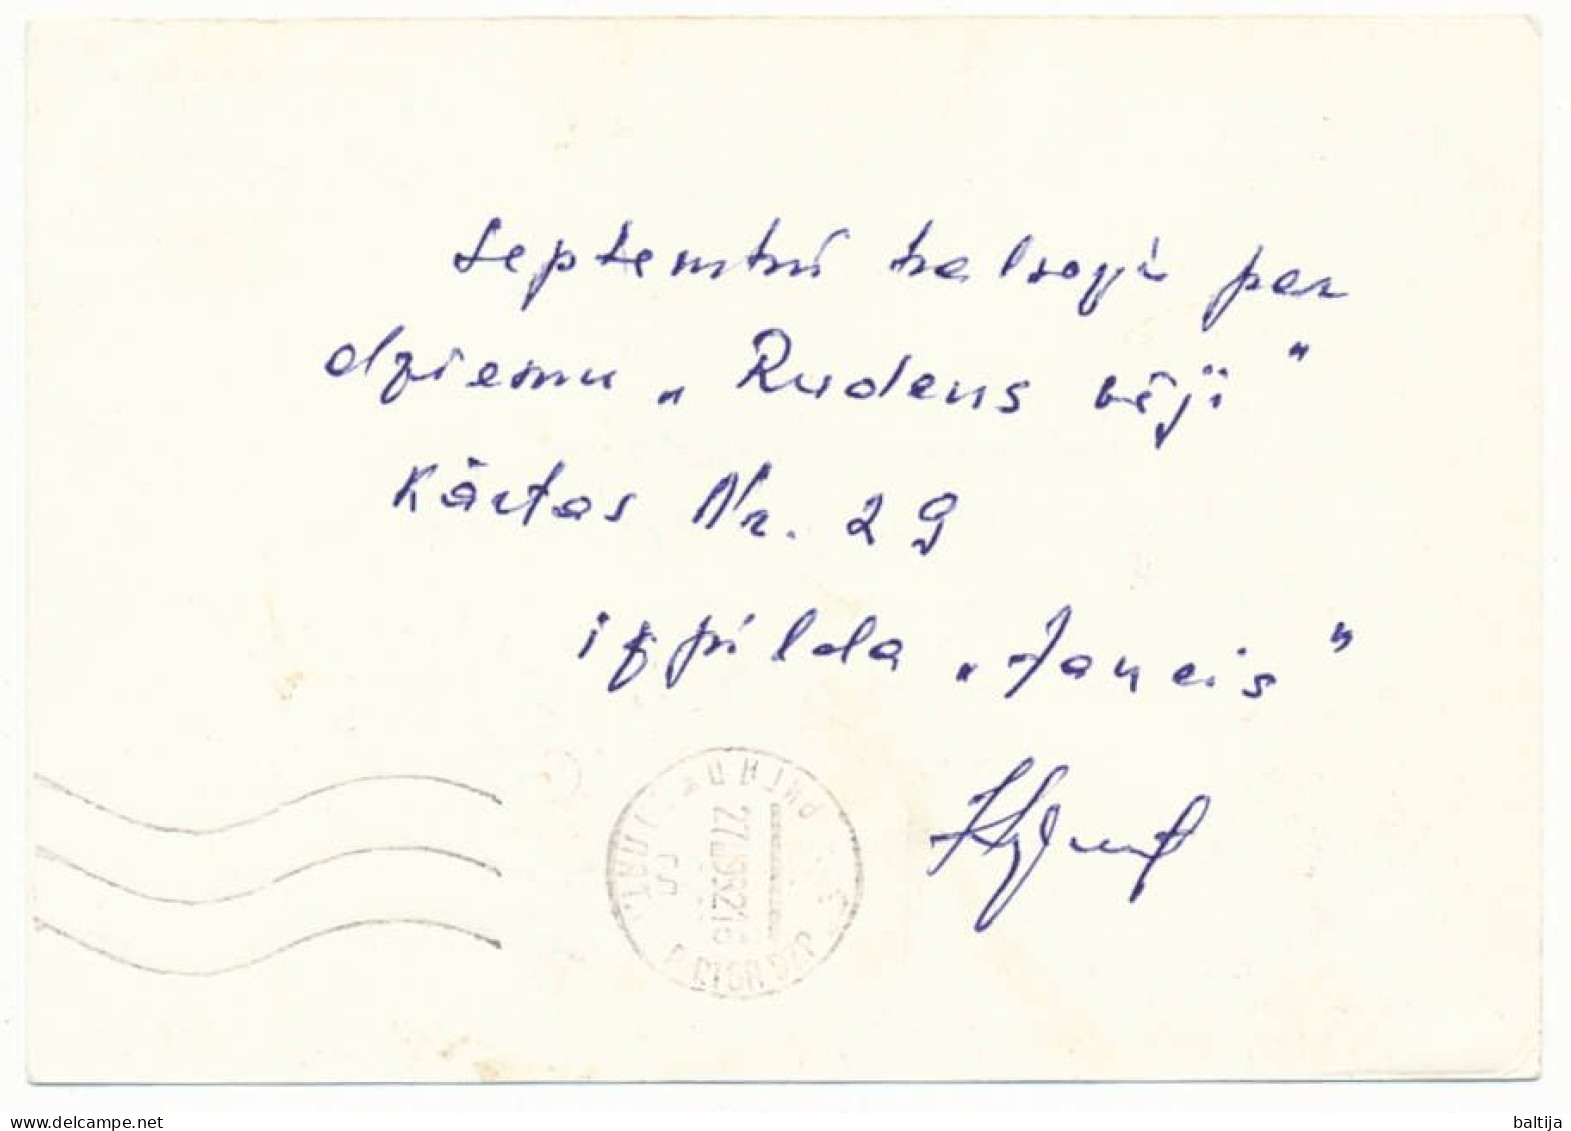 Septembrī balsoju par
dziesmu „Rudens vēji"
Kārtas Nr. 29
izpilda „Jancis"
27
www.delcampe.net
baltija